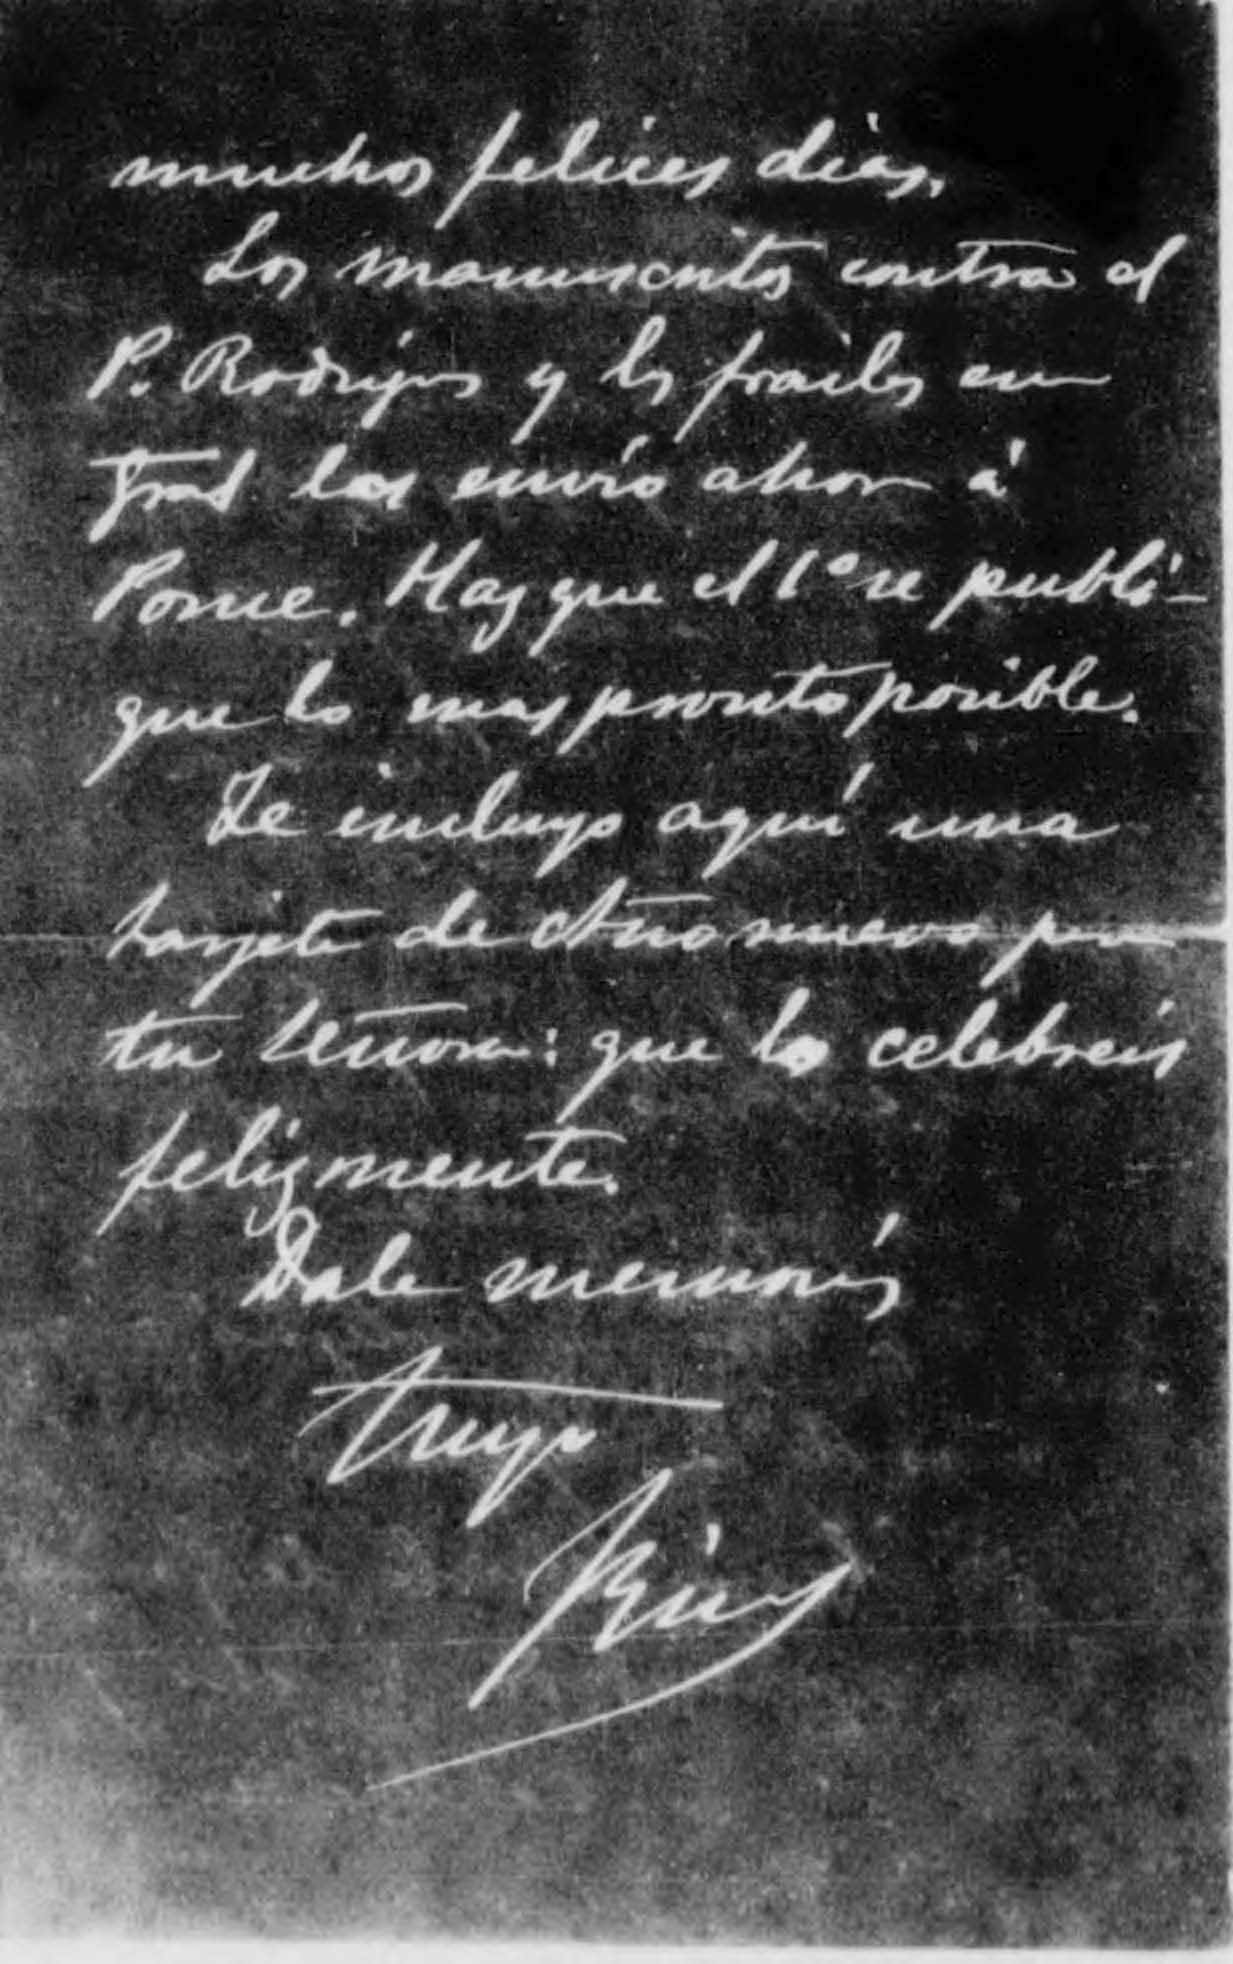 muchos felices días.
Los manuscritos contra el
P. Rodriguez y los frailes en
gral los envío ahora á
Ponce. Hay que el 1º se publi-
que lo mas pronto posible.
Te incluyo aquí una
tarjeta de Año nuevo para
tu señora: que lo celebreis
felizmente.
Dale memorias
Tuyo
Rizal